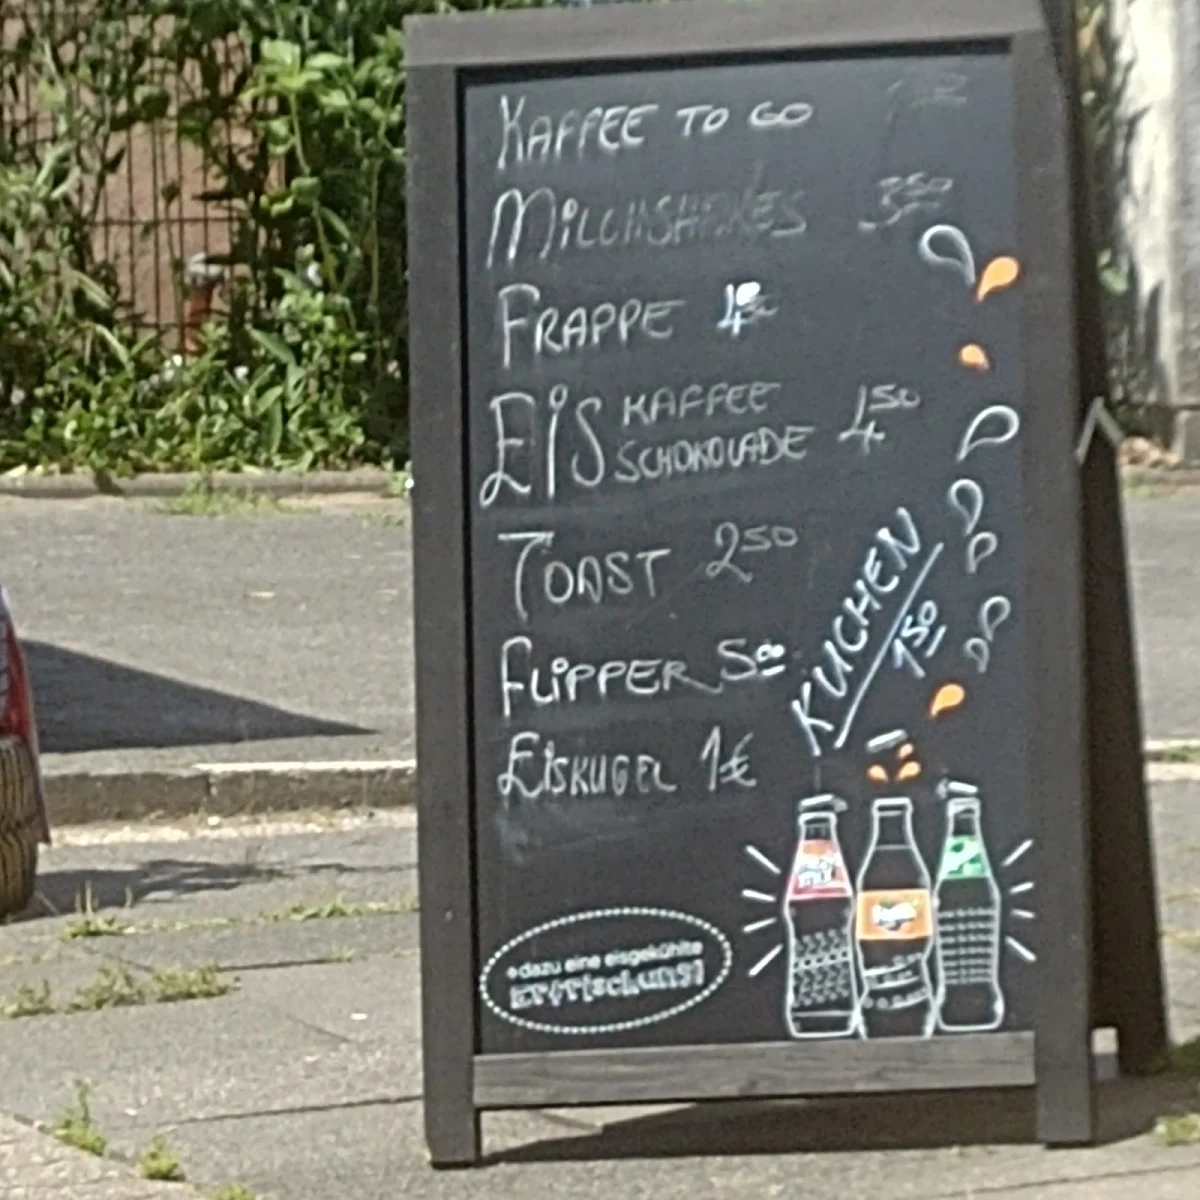 KAFFEE TO GO
MiLCHSHAKES 3⁵⁰
FRAPPE
EiS KAFFEE
SCHOKOLADE 4⁵⁰
TOAST 2⁵⁰
KUCHEN
1⁵⁰
FLiPPER 5⁰⁰
EiSKUGEL 1€
+dazu eine eisgekühlte
Erfrischung!